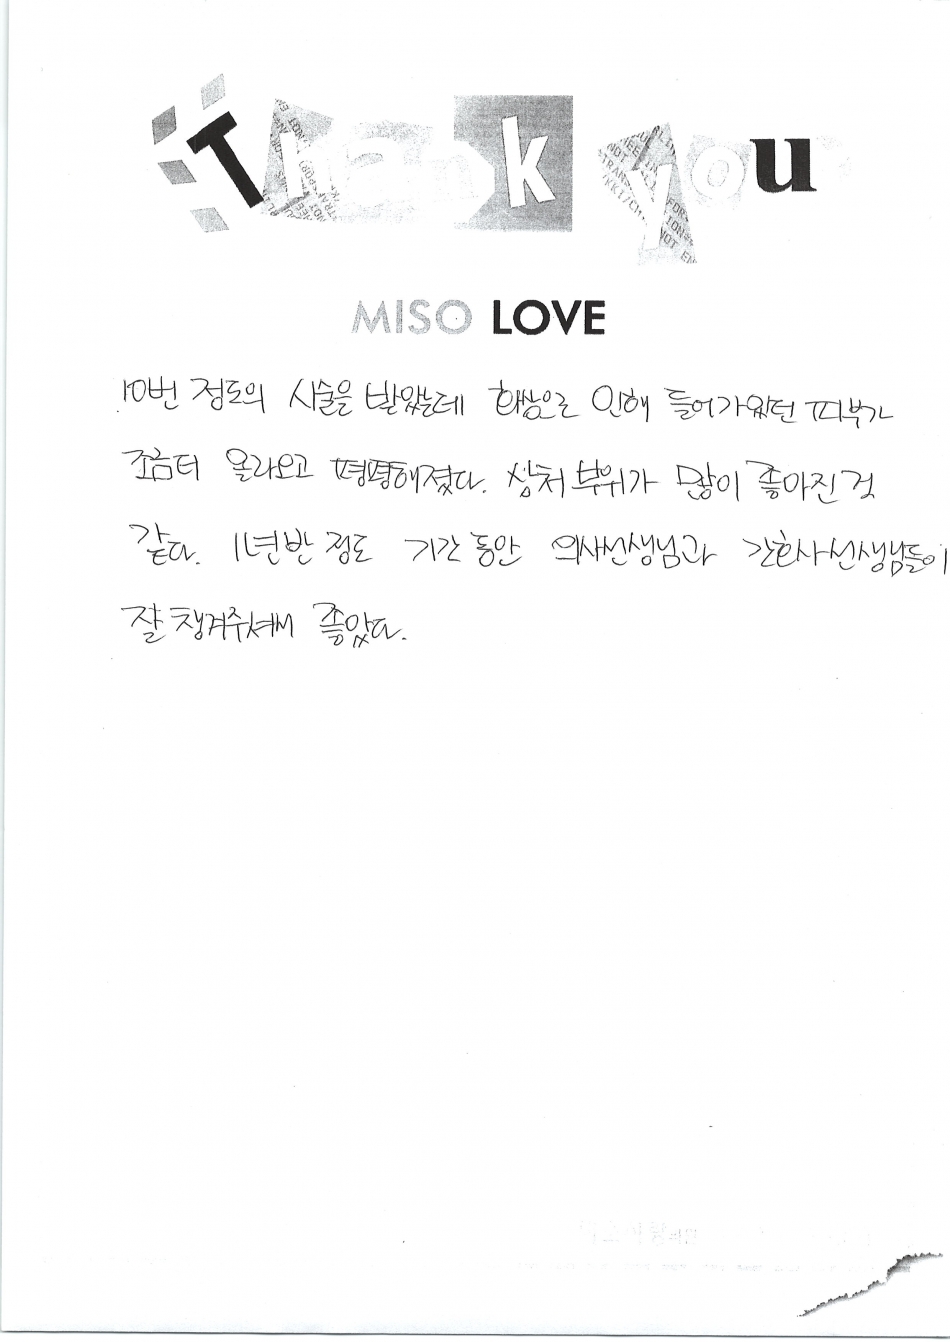 Thank you
MISO LOVE
10번 정도의 시술을 받았는데 화상으로 인해 들어가있던 피부가
조금더 올라오고 평평해졌다. 상처부위가 많이 좋아진 것
같다. 1년반 정도 기간 동안 의사선생님과 간호사선생님들이
잘 챙겨주셔서 좋았다.